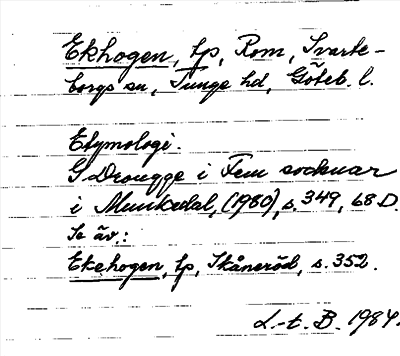 Ekhogen, tp, Rom, Svarte-
borgs sn, Tunge hd, Göteb. l.
Etymologi.
G Drougge i Fem socknar
i Munkedal, (1980), s. 349, 68 D.
Se äv.:
Ekehogen, tp, Skåneröd, s. 352.
L-t. B. 1984.